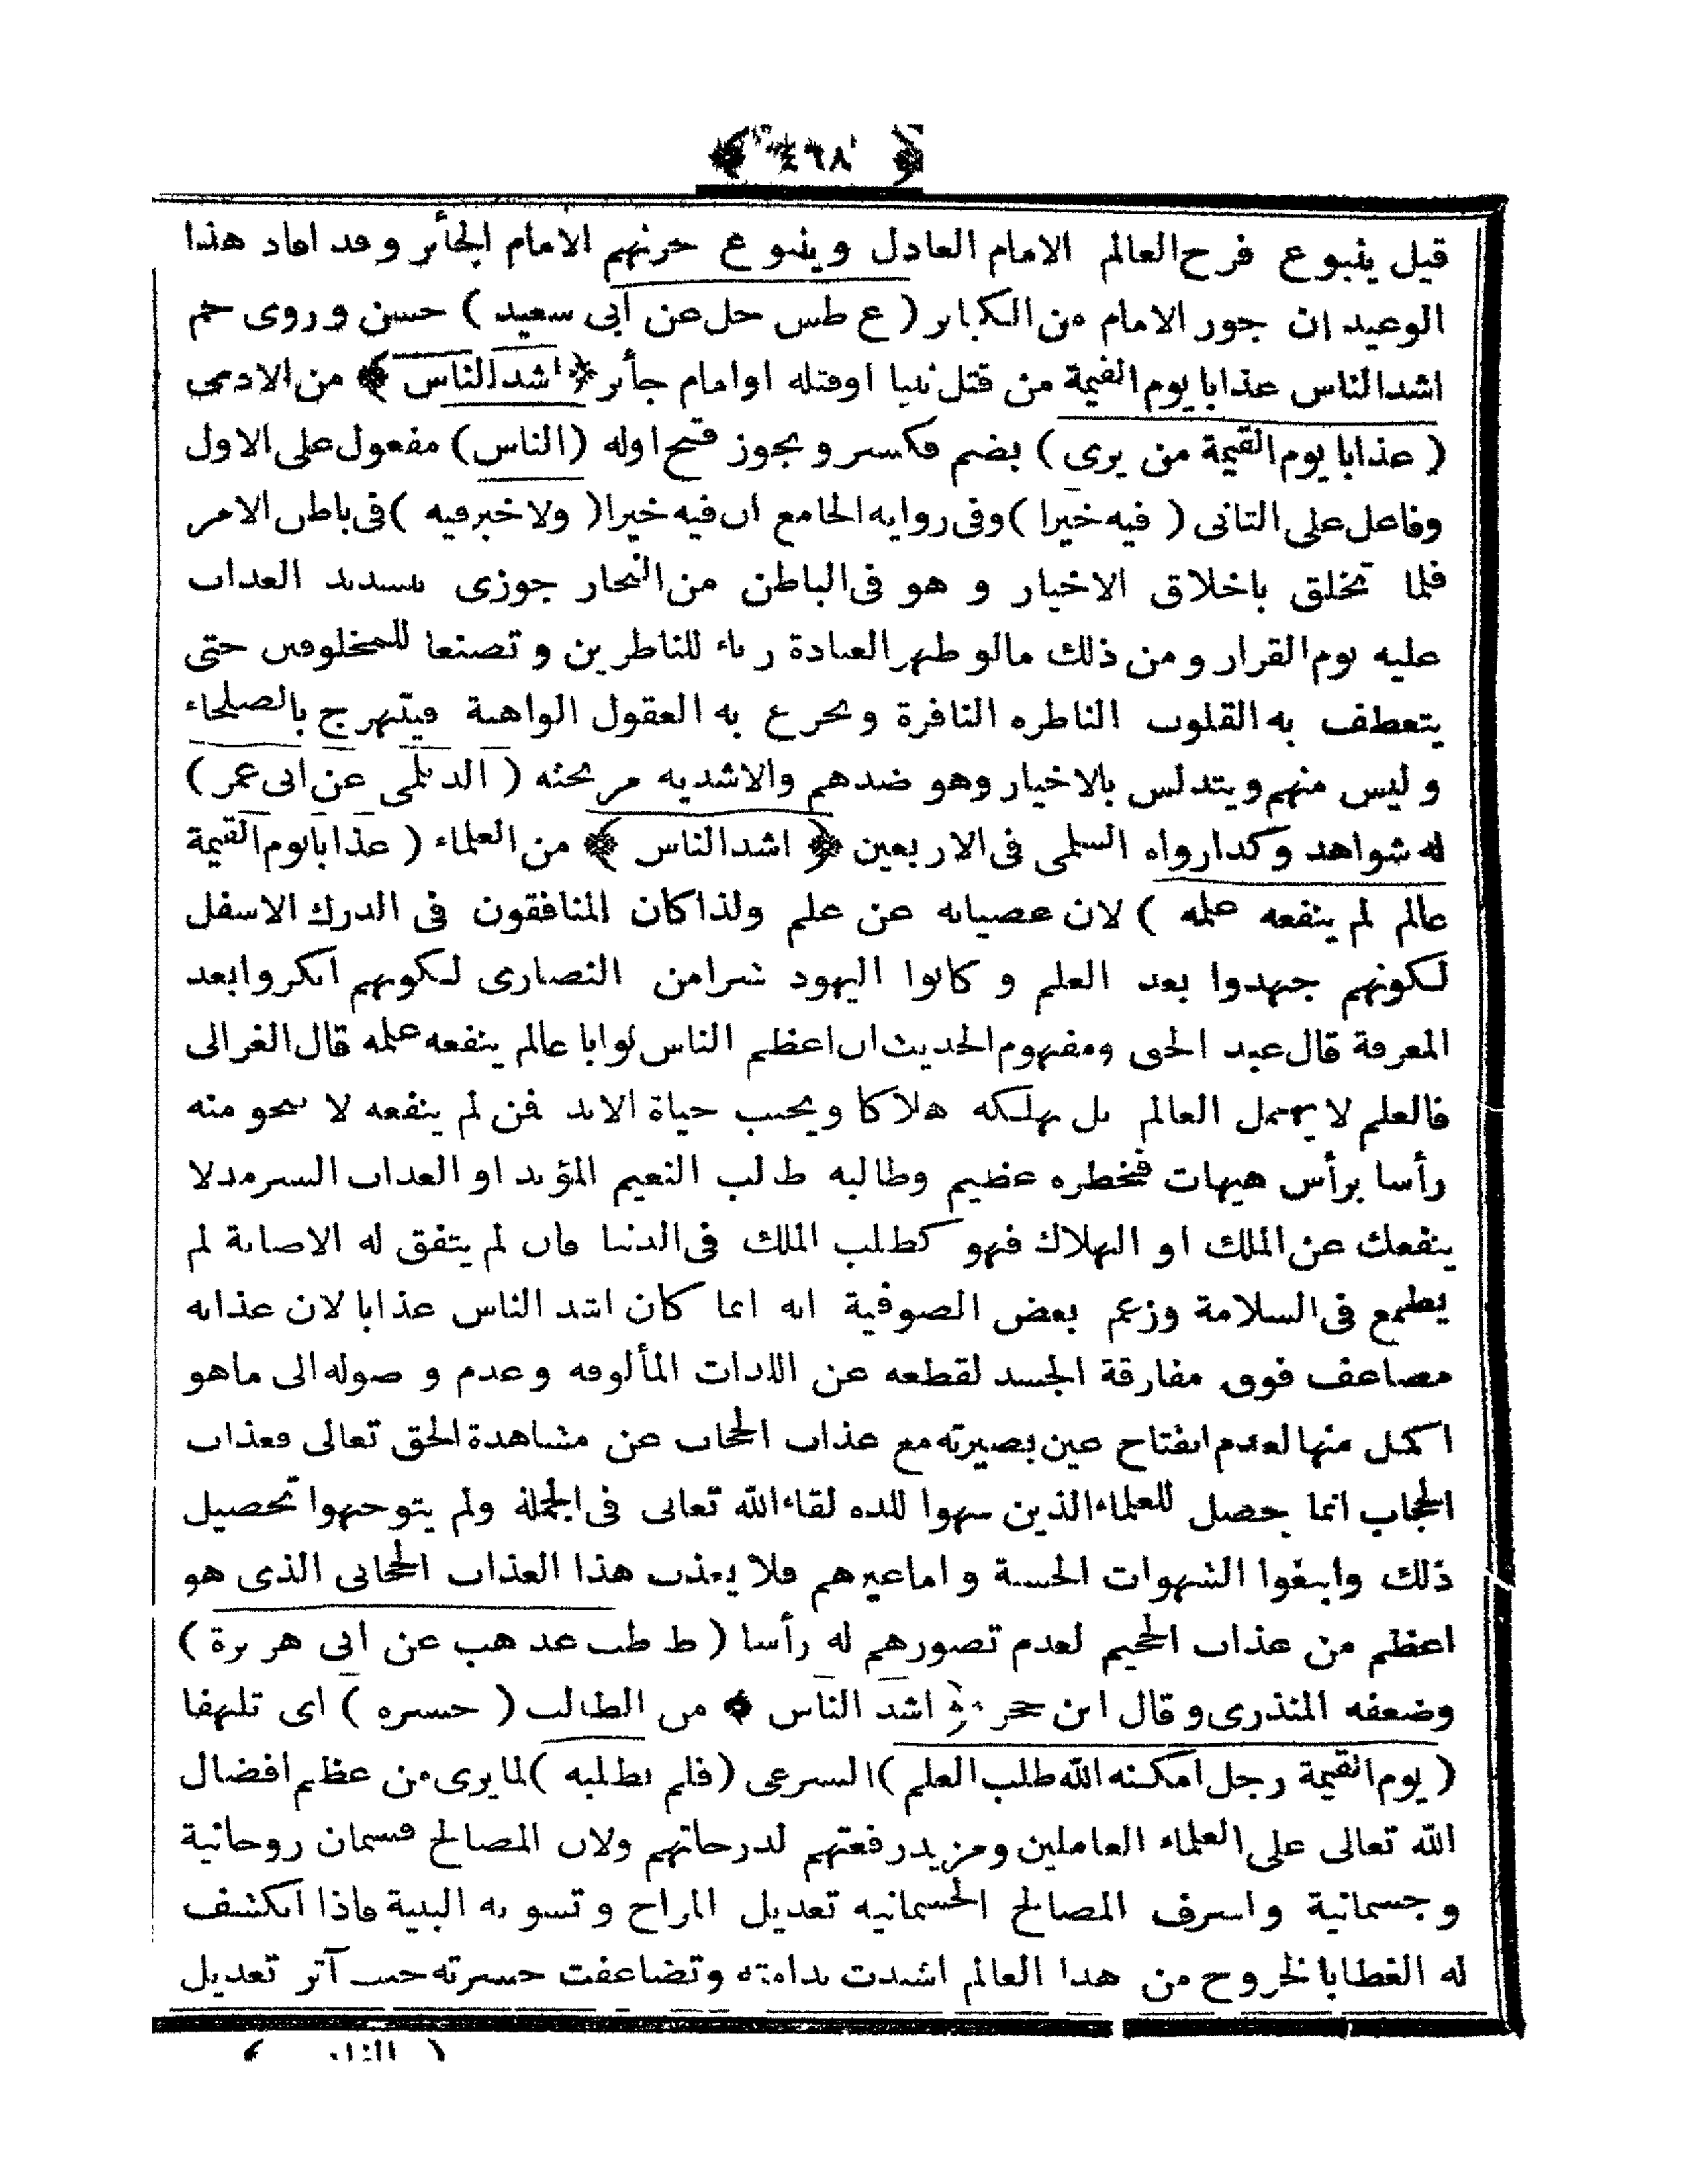 ﴿ ٤٦٨ ﴾
قيل ينبوع فرح العالم الامام العادل وينبوع حزنهم الامام الجأر وقد افاد هذا
الوعيد ان جور الامام من الكبائر ( ع طس حل عن ابى سعيد ) حسن وروى حم
اشد الناس عذابا يوم القيمة من قتل نبيا او قتله او امام جأر ﴿ اشد الناس ﴾ من الادمى
( عذابا يوم القيمة من يرى ) بضم فكسر ويجوز فتح اوله (الناس) مفعول على الاول
وفاعل على الثانى ( فيه خيرا ) وفى رواية الجامع ان فيه خيرا ( ولا خير فيه ) فى باطن الامر
فلما تخلق باخلاق الاخيار و هو فى الباطن من الفجار جوزى بتشديد العذاب
عليه يوم القرار ومن ذلك مالو ظهر العبادة رياء للناظرين و تصنعا للمخلوقين حتى
يتعطف به القلوب الناظره النافرة و يخدع به العقول الواهية فيتبهرج بالصلحاء
و ليس منهم ويتدلس بالاخيار وهو ضدهم والاشديه مر بحثه ( الديلمى عن ابى عمر )
له شواهد وكذا رواه السلمى فى الاربعين ﴿ اشد الناس ﴾ من العلماء ( عذابا يوم القيمة
عالم لم ينفعه علمه ) لان عصيانه عن علم ولذا كان المنافقون فى الدرك الاسفل
لكونهم جهدوا بعد العلم و كانوا اليهود شرا من النصارى لكونهم انكروا بعد
المعرفة قال عبد الحق ومفهوم الحديث ان اعظم الناس ثوابا عالم ينفعه علمه قال الغزالى
فالعلم لا يهمل العالم بل يهلكه هلاكا ويحيب حياة الابد فمن لم ينفعه لا ينجو منه
رأسا برأس هيهات فخطره عظيم وطالبه طالب النعيم المؤبد او العذاب السرمد لا
ينفعك عن الملك او الهلاك فهو كطلب الملك فى الدنيا فان لم يتفق له الاصابة لم
يطمع فى السلامة وزعم بعض الصوفية انه انما كان اشد الناس عذابا لان عذابه
مضاعف فوق مفارقة الجسد لقطعه عن اللذات المألوفه وعدم و صوله الى ماهو
اكمل منها لعدم انفتاح عين بصيرته مع عذاب الحجاب عن مشاهدة الحق تعالى فعذاب
الحجاب انما يحصل للعلماء الذين سهوا للذه لقاء الله تعالى فى الجملة ولم يتوجهوا تحصيل
ذلك وابتغوا الشهوات الحسية و اما غيرهم فلا يعذب هذا العذاب الحجابى الذى هو
اعظم من عذاب الجحيم لعدم تصورهم له رأسا ( ط طب عد هب عن ابى هريرة )
وضعفه المنذرى وقال ابن حجر ﴿ اشد الناس ﴾ من الطالب ( حسره ) اى تلهفا
( يوم القيمة رجل امكنه الله طلب العلم ) الشرعى ( فلم يطلبه ) لما يرى من عظم افضال
الله تعالى على العلماء العاملين ومزيد رفعتهم لدرجاتهم ولان المصالح قسمان روحانية
و جسمانية و اشرف المصالح الجسمانيه تعديل المزاج و تسويه البنية فاذا انكشف
له الغطا بالخروج من هذا العالم اشدت ندامته وتضاعفت حسرته حيث آثر تعديل